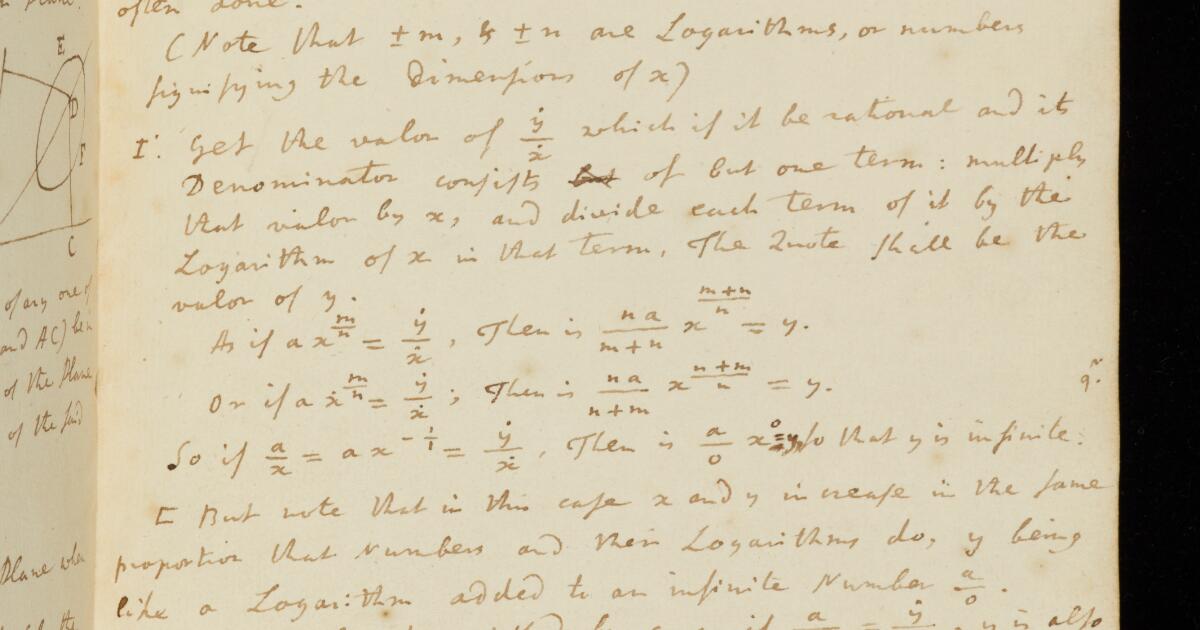 often done.
(Note that ±m, & ±n are Logarithms, or numbers
signifying the Dimensions of x)
1. Get the valor of ẏ/ẋ which if it be rational and its
Denominator consists but of but one term: multiply
that valor by x, and divide each term of it by the
Logarithm of x in that term, The Quote shall be the
valor of y.
As if ax^(m/n) = ẏ/ẋ, Then is na/(m+n) x^((m+n)/n) = y.
Or if ax^(m/n) = ẏ/ẋ; Then is na/(n+m) x^((n+m)/n) = y.
So if a/x = ax^(-1/1) = ẏ/ẋ. Then is a/0 x^0 = y, so that y is infinite.
[ But note that in this case x and y increase in the same
proportion that Numbers and their Logarithms do, y being
like a Logarithm added to an infinite Number a/0.
E
D
F
C
of any one of
and AC) be
of the Plane
of the said
Plane when